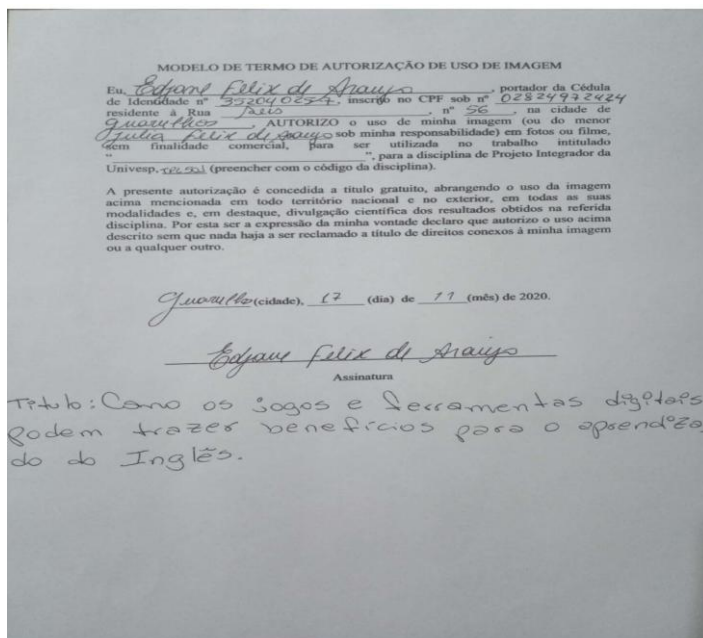 MODELO DE TERMO DE AUTORIZAÇÃO DE USO DE IMAGEM
Eu, Edjane Felix de Araujo, portador da Cédula
de Identidade nº, inscrito no CPF sob nº 02824972424
residente à Rua, nº 56, na cidade de
Guarulhos AUTORIZO o uso de minha imagem (ou do menor
Julia Felix de Araujo sob minha responsabilidade) em fotos ou filme,
sem finalidade comercial, para ser utilizada no trabalho intitulado
"", para a disciplina de Projeto Integrador da
Univesp, (preencher com o código da disciplina).
A presente autorização é concedida a título gratuito, abrangendo o uso da imagem
acima mencionada em todo território nacional e no exterior, em todas as suas
modalidades e, em destaque, divulgação científica dos resultados obtidos na referida
disciplina. Por esta ser a expressão da minha vontade declaro que autorizo o uso acima
descrito sem que nada haja a ser reclamado a título de direitos conexos à minha imagem
ou a qualquer outro.
Guarulhos (cidade), 17 (dia) de 11 (mês) de 2020.
Edjane Felix de Araujo
Assinatura
Título: Como os jogos e ferramentas digitais
podem trazer benefícios para o aprendiza
do do Inglês.